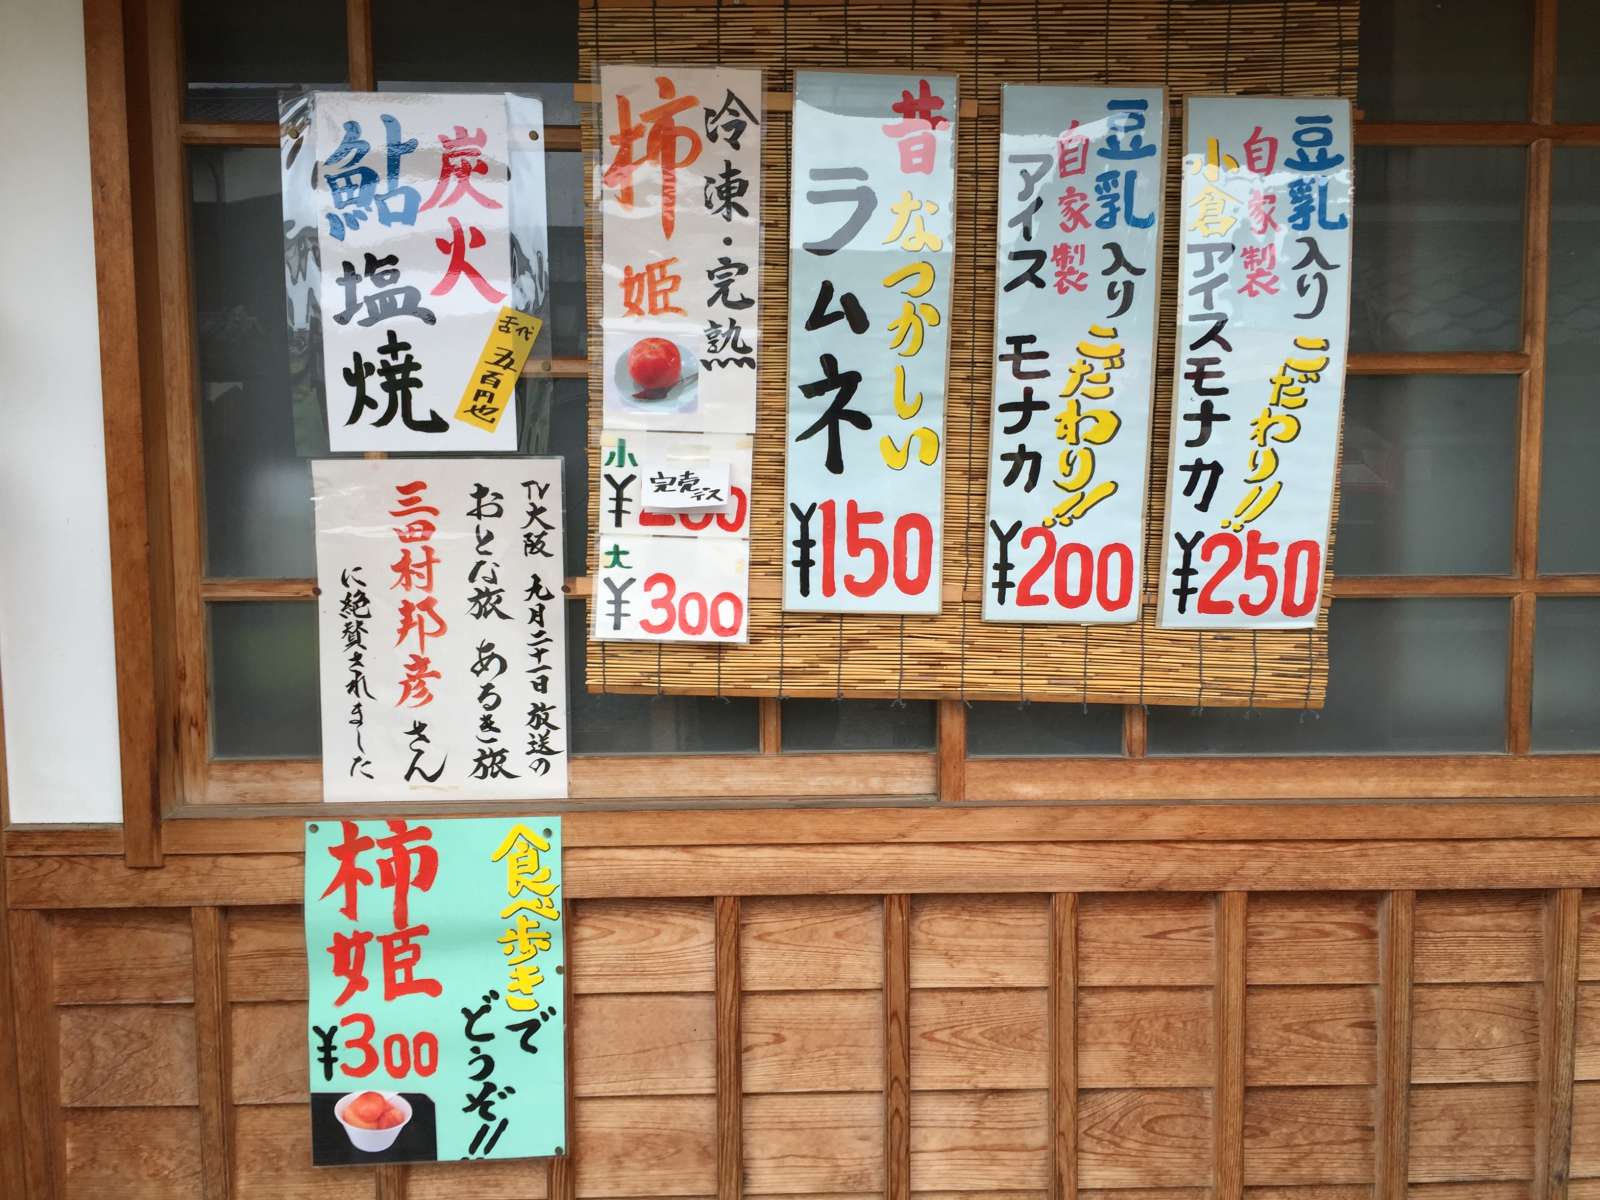 炭火
鮎塩焼
舌代 五百円也
冷凍・完熟
柿姫
小
¥200
完売デス
大
¥300
昔なつかしい
ラムネ
¥150
豆乳入り
自家製
こだわり!!
アイスモナカ
¥200
豆乳入り
自家製
こだわり!!
小倉アイスモナカ
¥250
TV大阪 九月二十一日放送の
おとな旅 あるき旅
三田村邦彦さん
に絶賛されました
食べ歩きで
どうぞ!!
柿姫
¥300